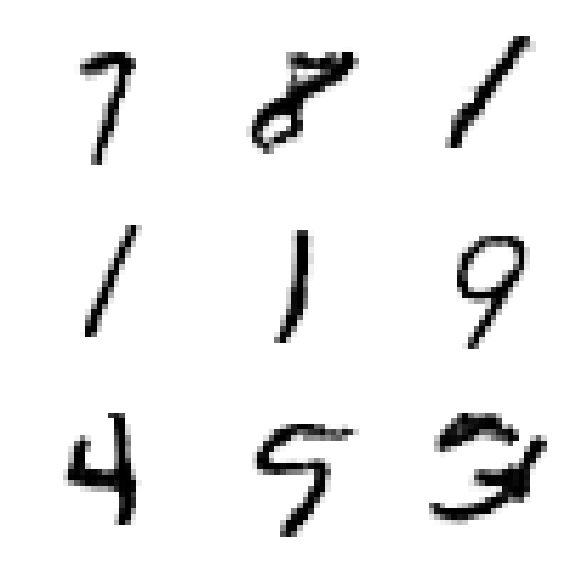 7 8 1
1 1 9
4 5 3